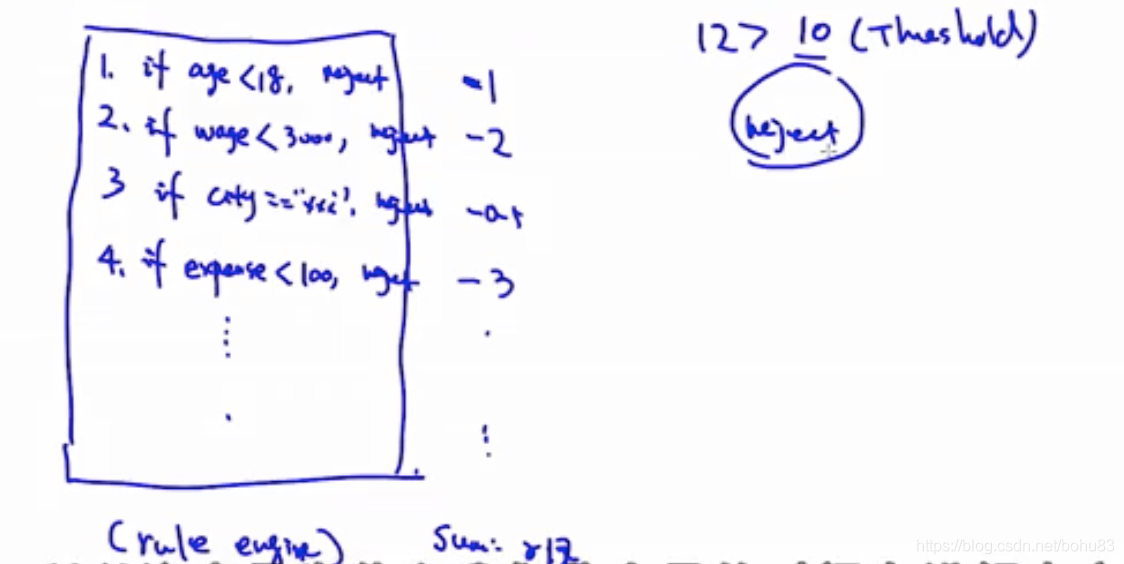 1. if age <18, reject -1
2. if wage < 3000, reject -2
3 if city == "xxi", reject
4. if expense < 100, reject -3
(rule engine) Sum:
12 > 10 (Threshold)
reject
https://blog.csdn.net/bohu83